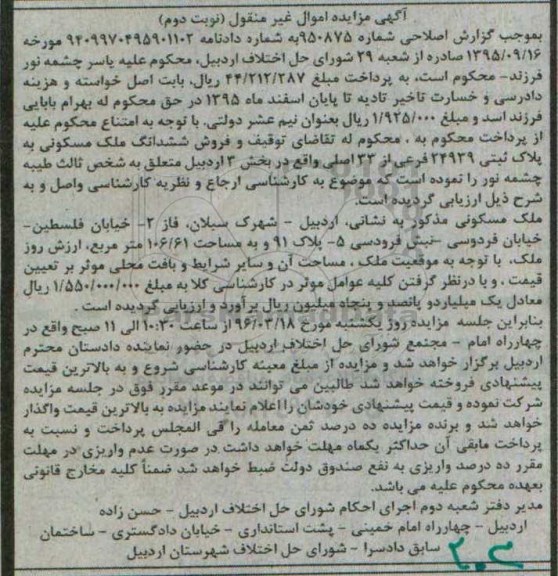 آگهی مزایده اموال غیر منقول (نوبت دوم)
بموجب گزارش اصلاحی شماره ۹۵۰۸۷۵به شماره دادنامه ۹۴۰۹۹۷۰۴۹۵۹۰۱۱۰۲ مورخه
۱۳۹۵/۰۹/۱۶ صادره از شعبه ۲۹ شورای حل اختلاف اردبیل، محکوم علیه یاسر چشمه نور
فرزند- محکوم است، به پرداخت مبلغ ۴۴/۲۱۲/۲۸۷ ریال، بابت اصل خواسته و هزینه
دادرسی و خسارت تاخیر تادیه تا پایان اسفند ماه ۱۳۹۵ در حق محکوم له بهرام بابایی
فرزند اسد و مبلغ ۱/۹۲۵/۰۰۰ ریال بعنوان نیم عشر دولتی. با توجه به امتناع محکوم علیه
از پرداخت محکوم به ، محکوم له تقاضای توقیف و فروش ششدانگ ملک مسکونی به
پلاک ثبتی ۲۴۹۳۹ فرعی از ۳۳ اصلی واقع در بخش ۳ اردبیل متعلق به شخص ثالث طیبه
چشمه نور را نموده است که موضوع به کارشناسی ارجاع و نظریه کارشناسی واصل و به
شرح ذیل ارزیابی گردیده است.
ملک مسکونی مذکور به نشانی، اردبیل - شهرک سبلان، فاز ۲- خیابان فلسطین-
خیابان فردوسی -نبش فرودسی ۵- پلاک ۹۱ و به مساحت ۱۰۶/۶۱ متر مربع، ارزش روز
ملک، با توجه به موقعیت ملک ، مساحت آن و سایر شرایط و بافت محلی موثر بر تعیین
قیمت ، و با درنظر گرفتن کلیه عوامل موثر در کارشناسی کلا به مبلغ ۱/۵۵۰/۰۰۰/۰۰۰ ریال
معادل یک میلیاردو پانصد و پنجاه میلیون ریال برآورد و ارزیابی گردیده است.
بنابراین جلسه مزایده روز یکشنبه مورخ ۹۶/۰۳/۱۸ از ساعت ۱۰:۳۰ الی ۱۱ صبح واقع در
چهارراه امام - مجتمع شورای حل اختلاف اردبیل در حضور نماینده دادستان محترم
اردبیل برگزار خواهد شد و مزایده از مبلغ معینه کارشناسی شروع و به بالاترین قیمت
پیشنهادی فروخته خواهد شد طالبین می توانند در موعد مقرر فوق در جلسه مزایده
شرکت نموده و قیمت پیشنهادی خودشان را اعلام نمایند مزایده به بالاترین قیمت واگذار
خواهد شد و برنده مزایده ده درصد ثمن معامله را فی المجلس پرداخت و نسبت به
پرداخت مابقی آن حداکثر یکماه مهلت خواهد داشت در صورت عدم واریزی در مهلت
مقرر ده درصد واریزی به نفع صندوق دولت ضبط خواهد شد ضمناً کلیه مخارج قانونی
بعهده محکوم علیه می باشد.
مدیر دفتر شعبه دوم اجرای احکام شورای حل اختلاف اردبیل - حسن زاده
اردبیل - چهارراه امام خمینی - پشت استانداری - خیابان دادگستری - ساختمان
سابق دادسرا - شورای حل اختلاف شهرستان اردبیل